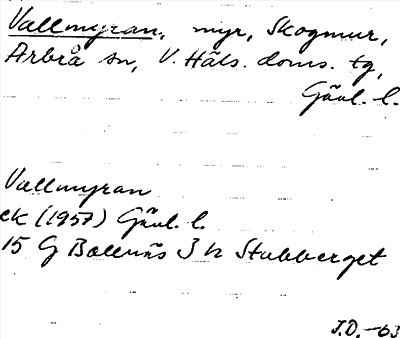 Vallmyran, myr, Skogmur,
Arbrå sn, V. Häls. doms. tg,
Gävl. l.
Vallmyran
ek (1957) Gävl. l.
15 G Bollnäs 3 h Stabberget
J.D. -63